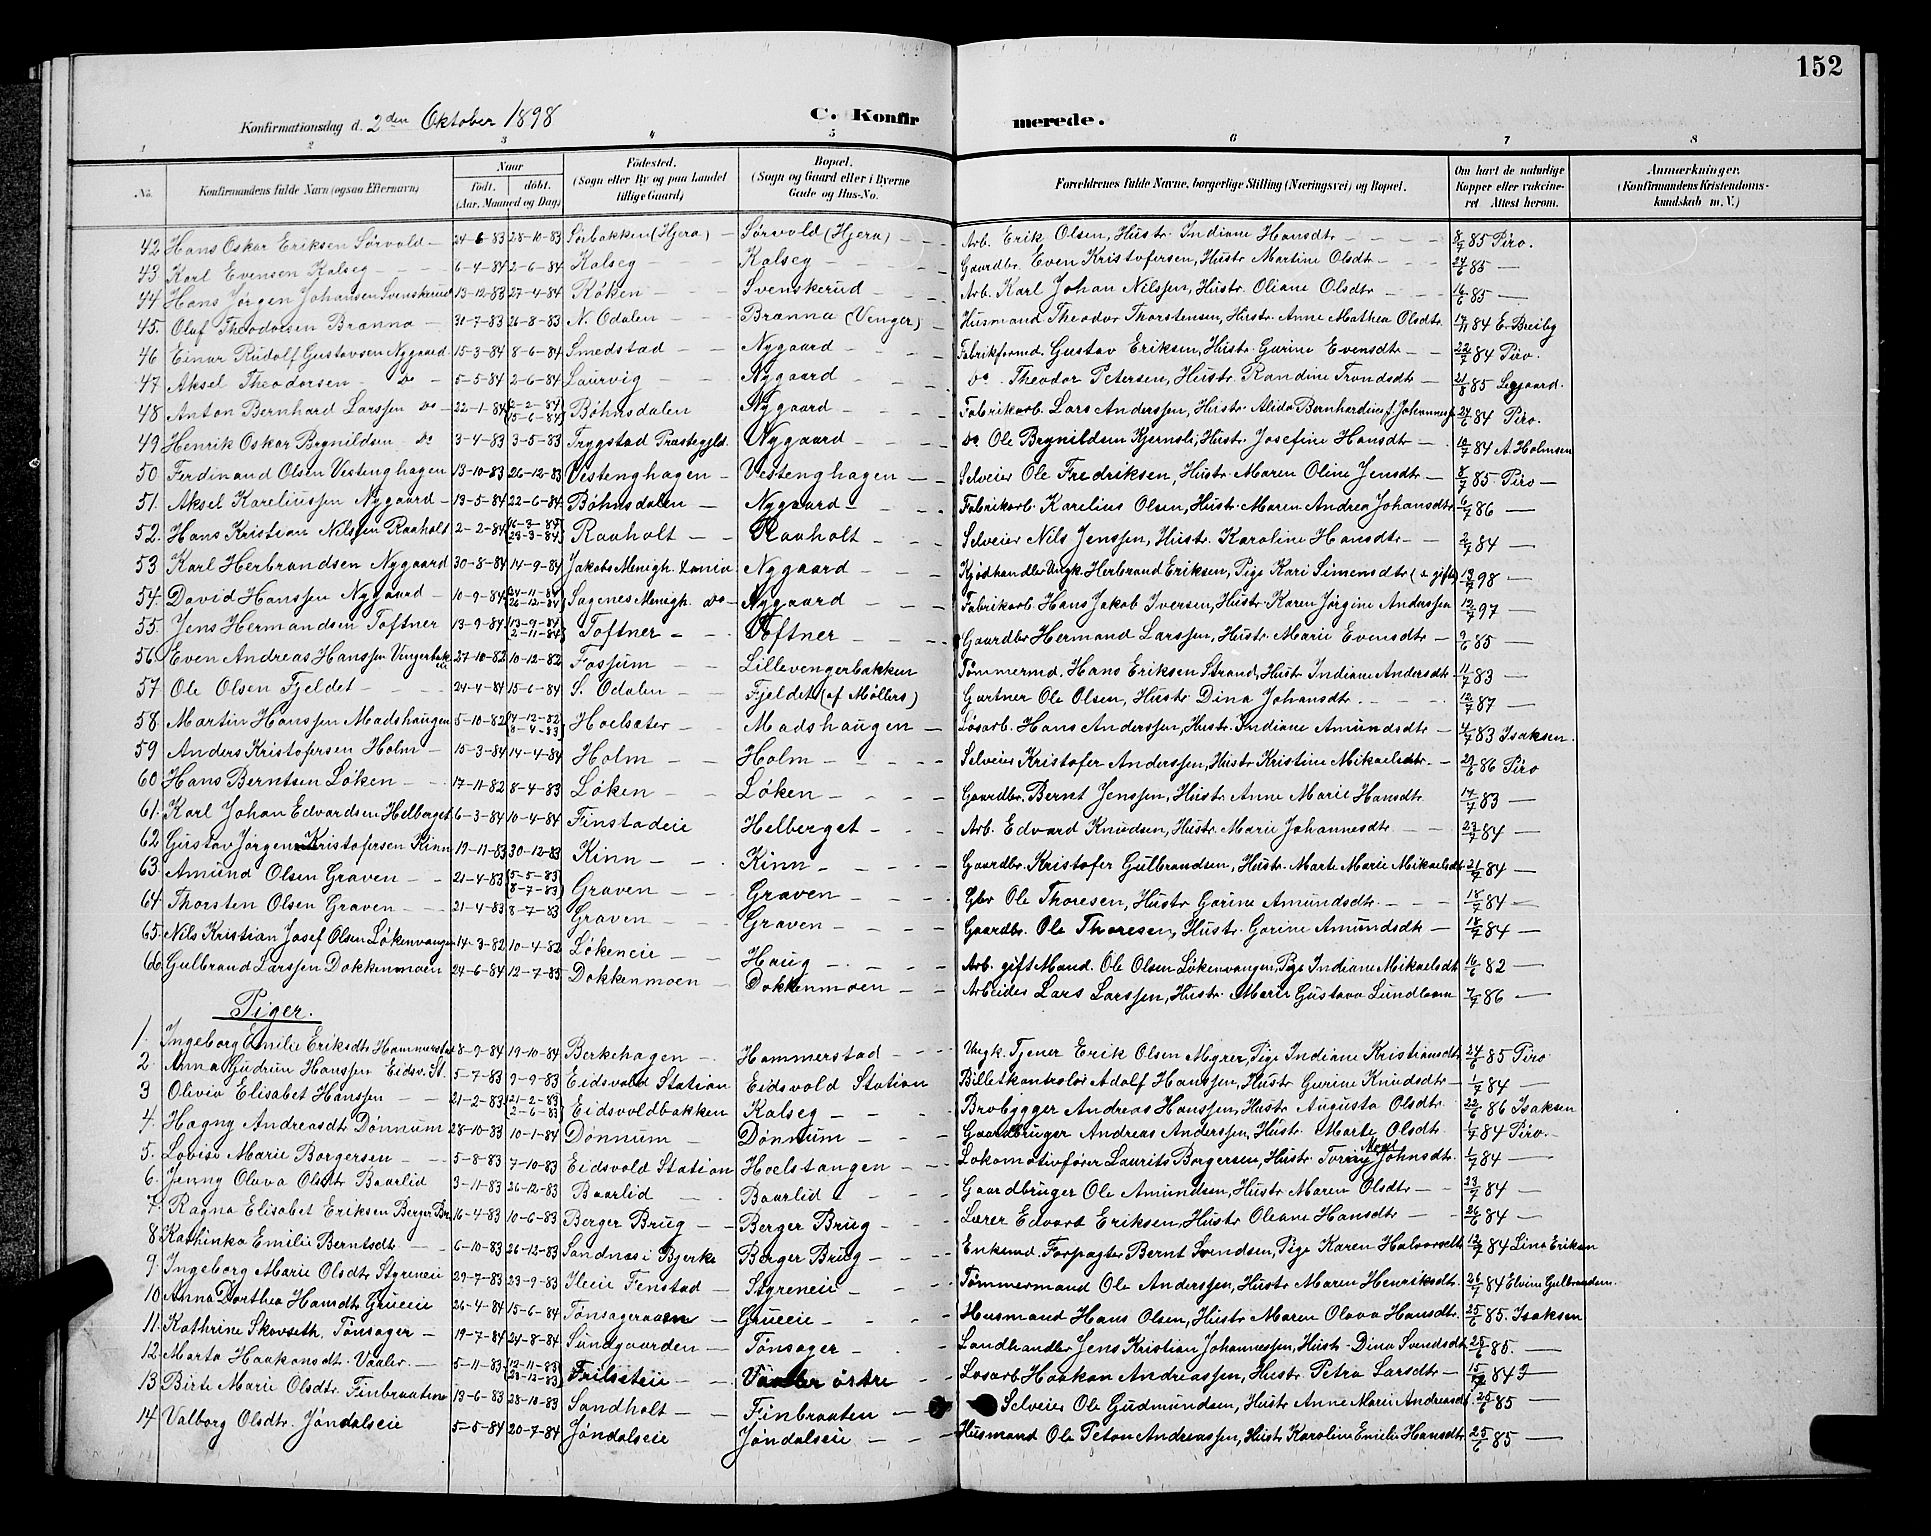 152
Konfirmationsdag d. 2den Oktober 1898 C. Konfirmerede.
1 2 3 4 5 6 7 8
No. Konfirmandens fulde Navn (ogsaa Efternavn) Naar født. døbt. (Aar, Maaned og Dag) Fødested. (Sogn eller By og paa Landet tillige Gaard) Bopæl. (Sogn og Gaard eller i Byerne Gade og Hus-No. Forældrenes fulde Navne, borgerlige Stilling (Næringsvei) og Bopæl. Om havt de naturlige Kopper eller vaccineret Attest herom. Anmærkninger. (Konfirmandens Kristendomskundskab m. V.)
42 Hans Oskar Eriksen Sørvold 24-6-83 28-10-83 Sørbakken (Hjera) Sørvold (Hjera) Arb. Erik Olsen, Hustr. Indiane Hansdtr 8/7 85 Piro.
43 Karl Evensen Kalseg 6-4-84 2-6-84 Kalseg Kalseg Gaardbr. Even Kristofersen, Hustr Martine Olsdt 24/6 85 —
44 Hans Jørgen Johansen Svenskerud 13-12-83 27-4-84 Røken Svenskerud Arb. Karl Johan Nilssen, Hustr. Oliane Olsdtr 16/6 85 —
45. Olaf Theodorsen Brænna 31-7-83 26-8-83 N. Odalen Brænna (Venger) Husmand Theodor Thorstensen, Hustr. Anne Mathea Olsdtr. 84 E. Breiby
46 Einar Rudolf Gustavsen Nygaard 15-3-84 8-6-84 Smedstad Nygaard Fabrikformd. Gustav Eriksen, Hustr. Gurine Evensdtr 22/7 84 Piro.
47 Aksel Theodorsen do 5-5-84 2-6-84 Laurvig Nygaard do. Theodor Petersen, Hustr. Randine Trondsdtr 21/8 85
48 Anton Bernhard Larssen do 22-1-84 (2-2-84 15-6-84) Bøhnsdalen Nygaard Fabrikarb. Lars Anderssen, Hustr. Alida Bernhardine f. 24/6 84 Piro.
49 Henrik Oskar Brynildsen do 3-4-83 3-5-83 Trygstad Præstegjld. Nygaard do Ole Brynildsen Kjernsli, Hustr. Josefine Hansdt 10/7 84 A. Holmsen
50 Ferdinand Olsen Vestenghagen 13-10-83 26-12-83 Vestenghagen Vestenghagen Selveier Ole Fredriksen, Hustr. Maren Oline Jensdt 8/7 85 Piro
51. Aksel Kareliussen Nygaard 13-5-84 22-6-84 Bøhnsdalen Nygaard Fabrikarb. Karelius Olsen, Hustr. Maren Andrea Johansdtr 6/7 86 —
52. Hans Kristian Nilssen Raaholt 2-2-84 Raaholt Raaholt Selveier Nils Jenssen, Hustr. Karoline Hansdt 2/7 84 —
53 Karl Herbrandsen Nygaard 30-8-84 14-9-84 Jakobs Menigh. Xania Nygaard Kjødhandler Ungk. Herbrand Eriksen, Pige Kari Simensdtr 98 —
54. David Hanssen Nygaard 10-9-84 (24-11-84 26-12-84) Sagenes Menigh. do Nygaard Fabrikarb. Hans Jakob Iversen, Hustr. Karen Jørgine Anderssen 12/7 97 —
55. Jens Hermandsen Toftner 13-9-84 (13-9-84 2-11-84) Toftner Toftner Gaardbr Hermand Larssen, Hustr. Marie Evensdtr 9/6 85 —
56. Even Andreas Hanssen 27-10-82 10-12-82 Fossum Lillevengerbakken Tømmermd. Hans Eriksen Strand, Hustr Indiane Andersdt 11/7 83 —
57 Ole Olsen Fjeldet 24-4-84 15-6-84 S. Odalen Fjeldet (af Møllers) Gartner Ole Olsen, Hustr. Dina Johansdtr. 12/7 87 —
58 Martin Hanssen Madshaugen 5-10-82 (14-12-82 8-4-83) Hoelsæter Madshaugen Løsarb. Hans Anderssen, Hustr. Indiane Amundsdtr 83 Isaksen.
59 Anders Kristofersen Holm 15-3-84 14-4-84 Holm Holm Selveier Kristofer Anderssen, Hustr Kristine Mikaelsdtr. 29/6 86 Piro
60 Hans Berntsen Løken 17-11-82 8-4-83 Løken Løken Gaardbr. Bernt Jenssen, Hustr Anne Marie Hansdt 14/7 83 —
61. Karl Johan Edvardsen Helberget 6-3-84 10-4-84 Finstadeie Helberget Arb. Edvard Knudsen, Hustr. Marie Johannesdtr 23/7 84 —
62 Gustav Jørgen Kristofersen Kinn 19-11-83 30-12-83 Kinn Kinn Gaardbr. Kristofer Gulbrandsen, Hustr. Marte Marie Mikaelsdt. 21/7 84 —
63. Amund Olsen Graven 21-4-83 (5-5-83 8-7-83) Graven Graven Gbr Ole Thoresen, Hustr Gorine Amundsdtr. 18/7 84 —
64. Thorsten Olsen Graven 21-4-83 8-7-83 Graven Graven Gaardbr. Ole Thoresen, Hustr. Gorine Amundsdtr 18/7 84 —
65. Nils Kristian Josef Olsen Løkenvangen 14-3-82 10-4-82 Løkeneie Haug Arb. gift Mand. Ole Olsen Løkenvangen, Pige Indiane Mikaelsdt 16/6 82 —
66. Gulbrand Larssen Dokkenmoen 24-6-84 12-7-85 Dokkenmoen Dokkenmoen Arbeider Lars Larssen, Hustr. Marie Gustava 7/7 86 —
Piger.
1. Ingeborg Emilie Eriksdtr Hammerstad 8-9-84 19-10-84 Berkehagen Hammerstad Ungk. Tjener Erik Olsen Myrer, Pige Indiane Kristiansdt 24/6 85 Piro
2. Anna Gudrun Hanssen Eidsv. St. 5-7-83 9-9-83 Eidsvold Station Eidsvold Station Billetkontrolør Adolf Hanssen, Hustr Gurine Knudsdtr 1/7 84 —
3 Olivia Elisabet Hanssen 21-2-83 (21-2-83 2-6-83) Eidsvoldbakken Kalseg Brobygger Andreas Hanssen, Hustr Augusta Olsdt 22/6 86 Isaksen
4. Hagny Andreasdtr Dønnum 28-10-83 10-1-84 Dønnum Dønnum Gaardbruger Andreas Anderssen, Hustr. Marte Olsdt. 1/7 84 Piro.
5. Lovise Marie Borgersen 5-8-83 7-10-83 Eidsvold Station Hoelstangen Lokomotivfører Laurits Borgersen, Hustr. Johnsdt. 1/7 84 —
6. Jenny Olava Olsdtr Baarlid 3-11-83 26-12-83 Baarlid Baarlid Gaardbruger Ole Amundsen, Hustr. Maren Olsdtr 23/7 84 —
7. Ragna Elisabet Eriksen Berger Br. 16-4-83 10-6-83 Berger Brug Berger Brug Lærer Edvart Eriksen, Hustr. Oleane Hansdtr 26/6 84 —
8 Kathinka Emilie Berntsdt 6-10-83 26-12-83 Sandnes i Bjerke Berger Brug Enkemd. Forpagter Bernt Svendsen, Pige Karen Halvorsdt. 12/7 84 Lina Eriksen
9. Ingeborg Marie Olsdtr Styreneie 29-7-83 23-9-83 Ileie Fenstad Styreneie Tømmermand Ole Anderssen, Hustr. Maren Henriksdt. 26/7 84 Elvine Gulbrandsen.
10. Anna Dorthea Hansdtr. Grueeie 26-4-84 15-6-84 Tønsageraaen Grueeie Husmand Hans Olsen, Hustr. Maren Olava Hansdtr. 25/6 85. Isaksen
11. Kathrine Skovseth. Tønsager 19-7-84 24-8-84 Sundgaarden Tønsager Landhandler Jens Kristian Johannessen, Hustr. Dina Svendsdt 25/6 85. —
12. Marta Haakonsdt. Vaaler. 5-11-83 (12-11-83 23-12-83) Frilseteie Vaaler østre Løsarb Haakon Andreassen, Hustr. Petra Larsdtr 84
13. Birte Marie Olsdtr. Finbraaten 13-6-83 28-10-83 Sandholt Finbraaten Selveier Ole Gudmundsen, Hustr. Anne Marie Andreasdt. 25/6 85 —
14 Valborg Olsdtr. Jøndalseie 5-5-84 20-7-84 Jøndalseie Jøndalseie Husmand Ole Peton Andreassen, Hustr Karoline Emilie Hansdtr 25/6 85 —